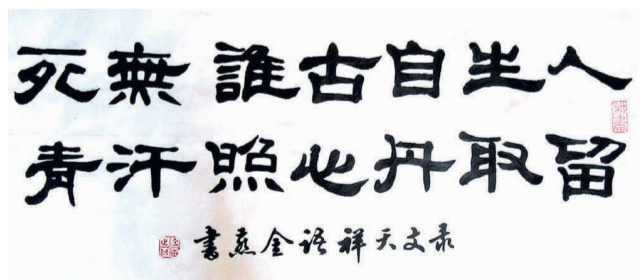 人生自古誰無死
留取丹心照汗青
录文天祥语金燕書